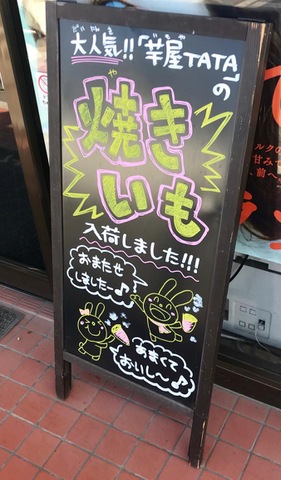 大人気!!「芋屋TATA」の
焼き
いも
入荷しました!!!
おまたせ
しました〜♪
あまくて
おいし〜♪